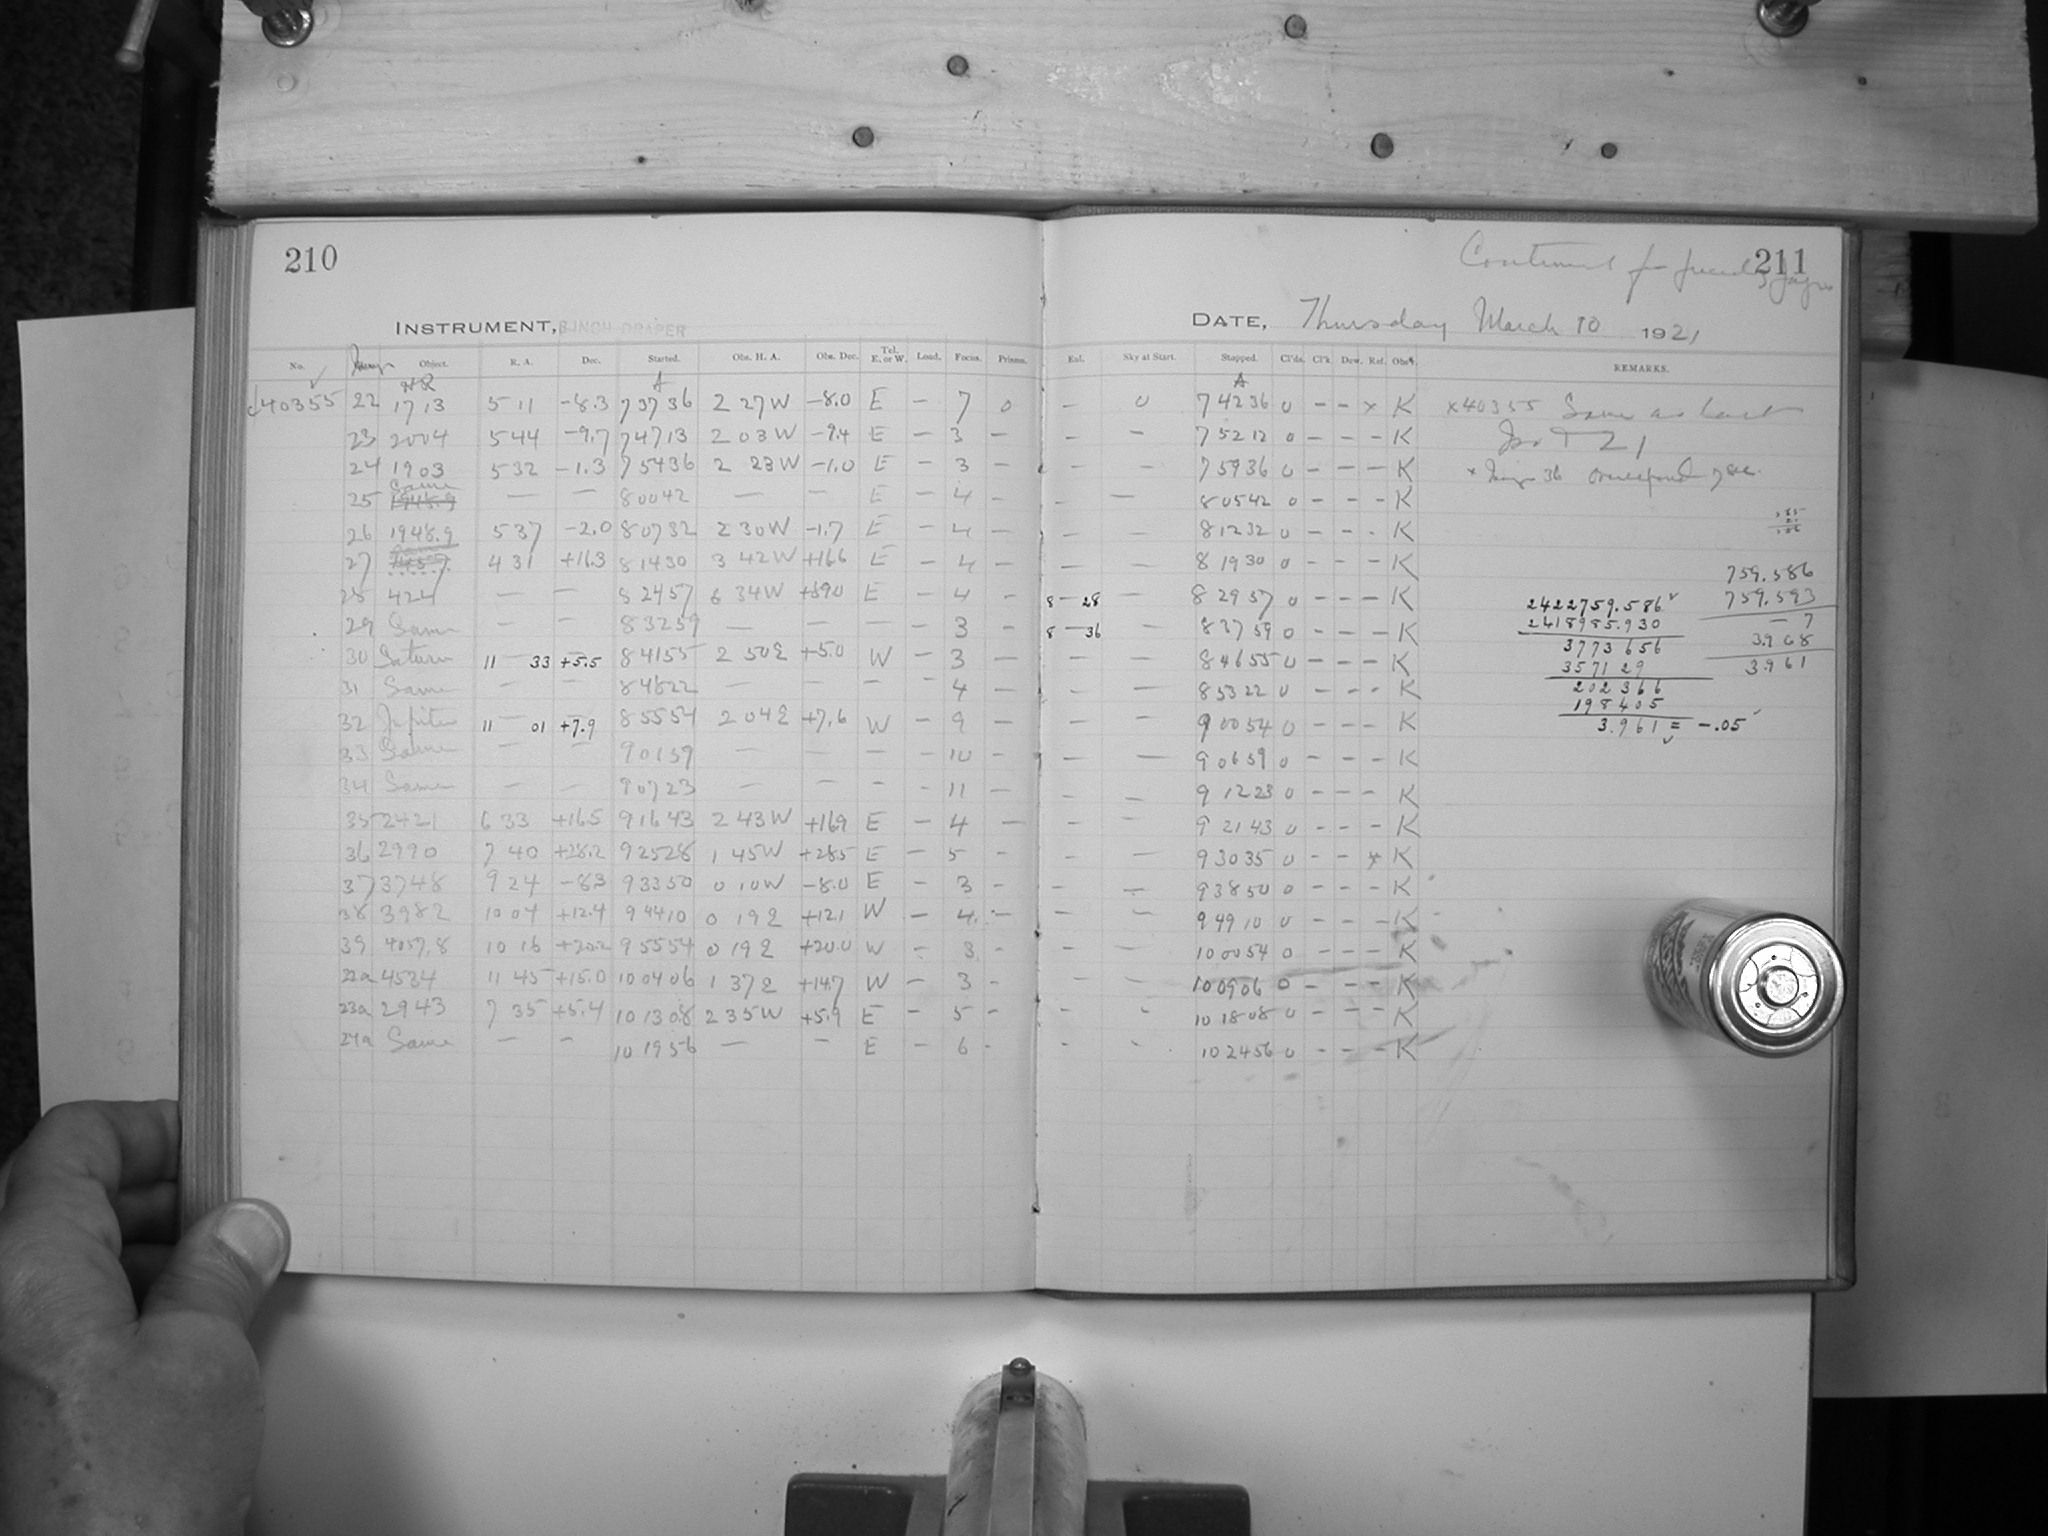 210
211
INSTRUMENT, 8 INCH DRAPER
DATE, Thursday March 10 1921
No. Object. R. A. Dec. Started. Obs. H. A. Obs. Dec. Tel. E. or W. Load. Focus. Prisms. Exl. Sky at Start. Stopped. Cl'ds. Cl'k. Dew. Ref. Obsr. REMARKS.
HR A A
40355 22 1713 5 11 -8.3 73736 2 27W -8.0 E - 7 0 - 0 74236 0 - - x K x40355 Same as last
23 2004 5 44 -9.7 74713 2 03W -9.4 E - 3 - - - 75212 0 - - - K
24 1903 5 32 -1.3 75436 2 23W -1.0 E - 3 - - - 75936 0 - - - K
25 Same - - 80042 - - E - 4 - - - 80542 0 - - - K
26 1948.9 5 37 -2.0 80732 2 30W -1.7 E - 4 - - - 81232 0 - - - K
27 4 31 +16.3 81430 3 42W +166 E - 4 - - - 81930 0 - - - K
28 424 - - 82457 6 34W +890 E - 4 - 8 28 - 82957 0 - - - K
29 Same - - 83259 - - - 3 - 8 36 - 83759 0 - - - K
30 Saturn 11 33 +5.5 84155 2 50E +5.0 W - 3 - - - 84655 0 - - - K
31 Same - - 84822 - - - - 4 - - - 85322 0 - - - K
32 Jupiter 11 01 +7.9 85554 2 04E +7.6 W - 9 - - - 90054 0 - - - K
33 Same - - 90159 - - - - 10 - - - 90659 0 - - - K
34 Same - - 90723 - - - - 11 - - - 91223 0 - - - K
35 2421 6 33 +16.5 91643 2 43W +169 E - 4 - - - 92143 0 - - - K
36 2990 7 40 +28.2 92528 1 45W +285 E - 5 - - - 93035 0 - - x K
37 3748 9 24 -83 93350 0 10W -8.0 E - 3 - - - 93850 0 - - - K
38 3982 10 04 +12.4 94410 0 19E +12.1 W - 4 - - - 94910 0 - - - K
39 4057,8 10 16 +20.2 95554 0 19E +20.0 W - 3 - - - 100054 0 - - - K
22a 4534 11 45 +15.0 100406 1 37E +147 W - 3 - - - 100906 0 - - - K
23a 2943 7 35 +5.4 101308 2 35W +5.9 E - 5 - - - 101808 0 - - - K
24a Same - - 101956 - - E - 6 - - - 102456 0 - - - K
759.586
759.593
- 7
3968
3.961
2422759.586
2418985.930
3773 656
3571 29
202 366
198 405
3.961 = -.05